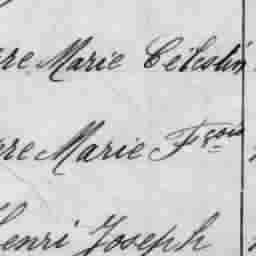 rre Marie Célestin
rre Marie Fçois
Henri Joseph